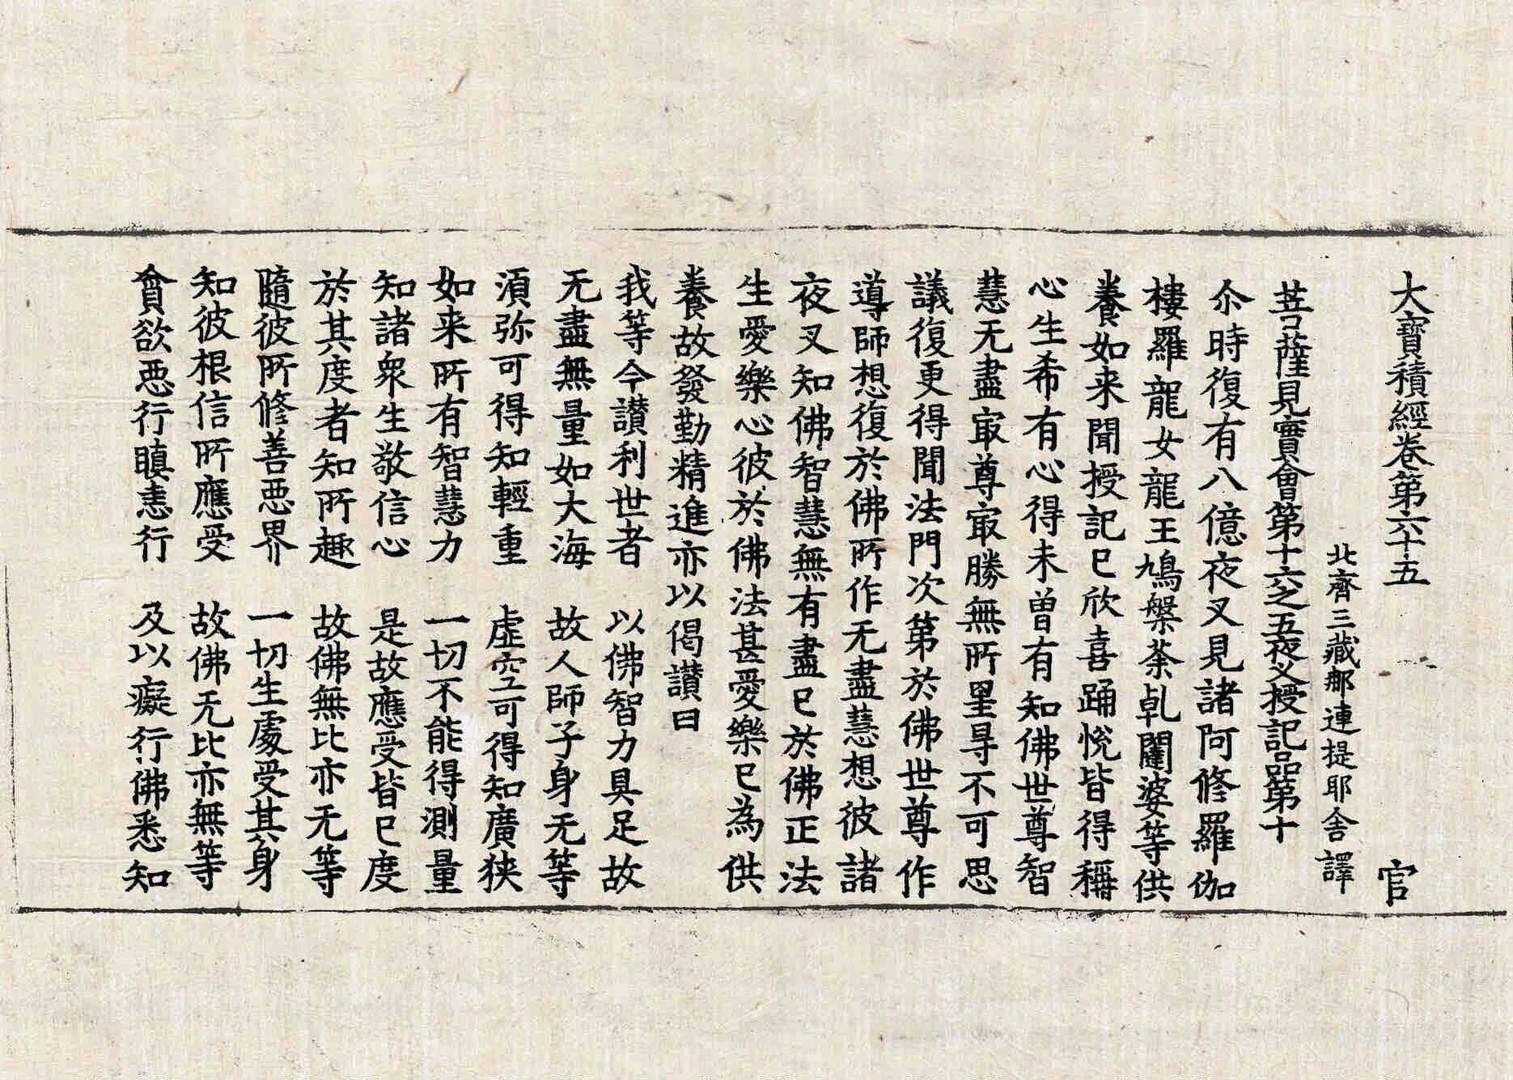 大寶積經卷第六十五 官
北齊三藏那連提耶舎譯
菩薩見實會第十六之五夜叉授記品第十
尒時復有八億夜叉見諸阿修羅伽
樓羅龍女龍王鳩槃荼乹闥婆等供
養如来聞授記已欣喜踊悅皆得稱
心生希有心得未曽有知佛世尊智
慧无盡㝡尊㝡勝無所罣㝵不可思
議復更得聞法門次第於佛世尊作
導師想復於佛所作无盡慧想彼諸
夜叉知佛智慧無有盡已於佛正法
生愛樂心彼於佛法甚愛樂已為供
養故發勤精進亦以偈讃曰
我等今讃利世者 以佛智力具足故
无盡無量如大海 故人師子身无等
湏弥可得知輕重 虛空可得知廣狹
如来所有智慧力 一切不能得測量
知諸衆生敬信心 是故應受皆已度
於其度者知所趣 故佛無比亦无等
隨彼所修善惡界 一切生處受其身
知彼根信所應受 故佛无比亦無等
貪欲惡行瞋恚行 及以癡行佛悉知